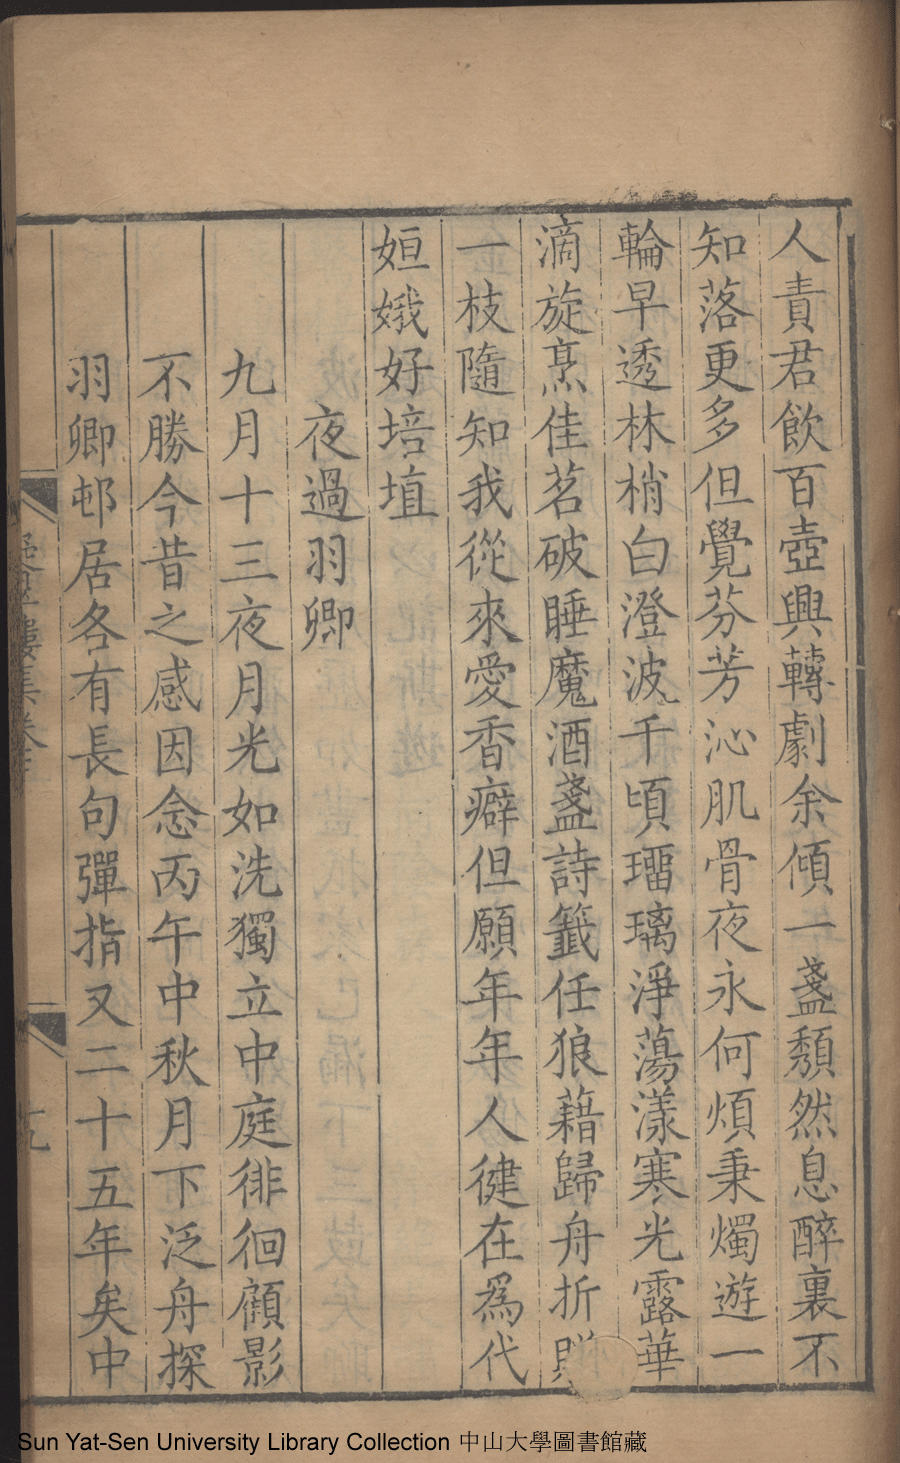 人責君飲百壺興轉劇余傾一盞頽然息醉裏不
知落更多但覺芬芳沁肌骨夜永何煩秉燭遊一
輪早透林梢白澄波千頃瑠璃淨蕩漾寒光露華
滴旋烹佳茗破睡魔酒盞詩籤任狼藉歸舟折贈
一枝隨知我從來愛香癖但願年年人健在為代
姮娥好培埴
夜過羽卿
九月十三夜月光如洗獨立中庭徘徊顧影
不勝今昔之感因念丙午中秋月下泛舟探
羽卿邨居各有長句彈指又二十五年矣中
Sun Yat-Sen University Library Collection 中山大學圖書館藏